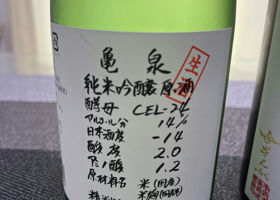 亀泉
生
純米吟醸原酒
酵母 CEL-24
アルコール分 14%
日本酒度 -14
酸度 2.0
アミノ酸 1.2
原材料名 米(国産)
米麹(国産米)